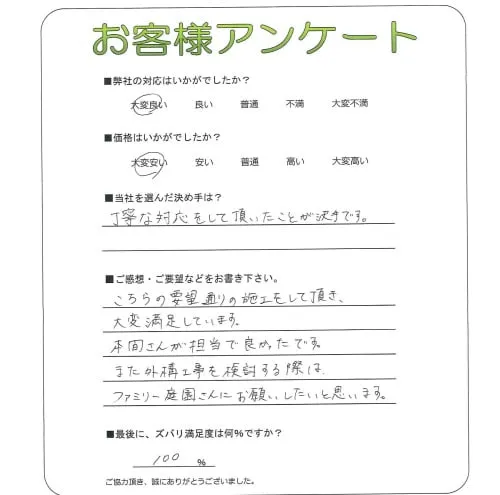 お客様アンケート
■弊社の対応はいかがでしたか?
大変良い 良い 普通 不満 大変不満
■価格はいかがでしたか?
大変安い 安い 普通 高い 大変高い
■当社を選んだ決め手は?
丁寧な対応をして頂いたことが決手です。
■ご感想・ご要望などをお書き下さい。
こちらの要望通りの施工をして頂き、
大変満足しています。
本間さんが担当で良かったです。
また外構工事を検討する際は、
ファミリー庭園さんにお願いしたいと思います。
■最後に、ズバリ満足度は何%ですか?
100 %
ご協力頂き、誠にありがとうございました。